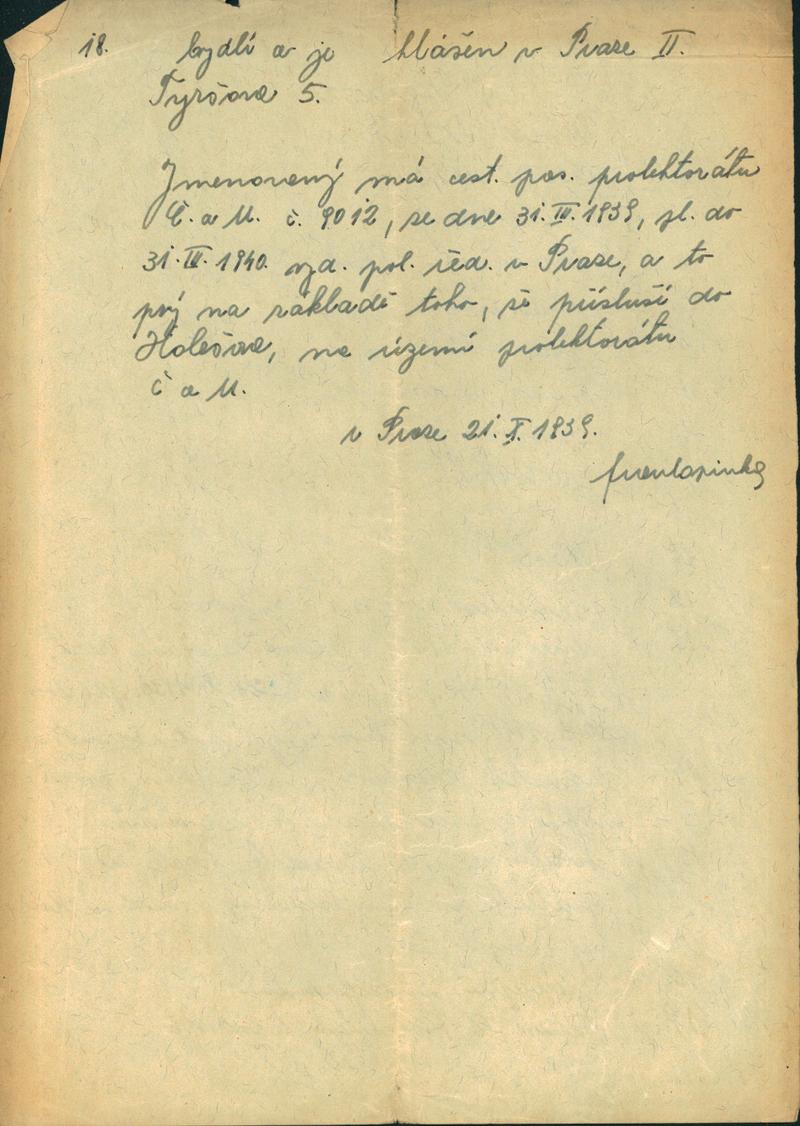 18. bydlí a je hlášen v Praze II.
Tyršova 5.
Jmenovaný má cest. pas. protektorátu
Č. a M. č. 9012, ze dne 31. III. 1939, pl. do
31. III. 1940. vyd. pol. řed. v Praze, a to
prý na základě toho, že přísluší do
Holešova, na území protektorátu
Č a M.
v Praze 21. X. 1939.